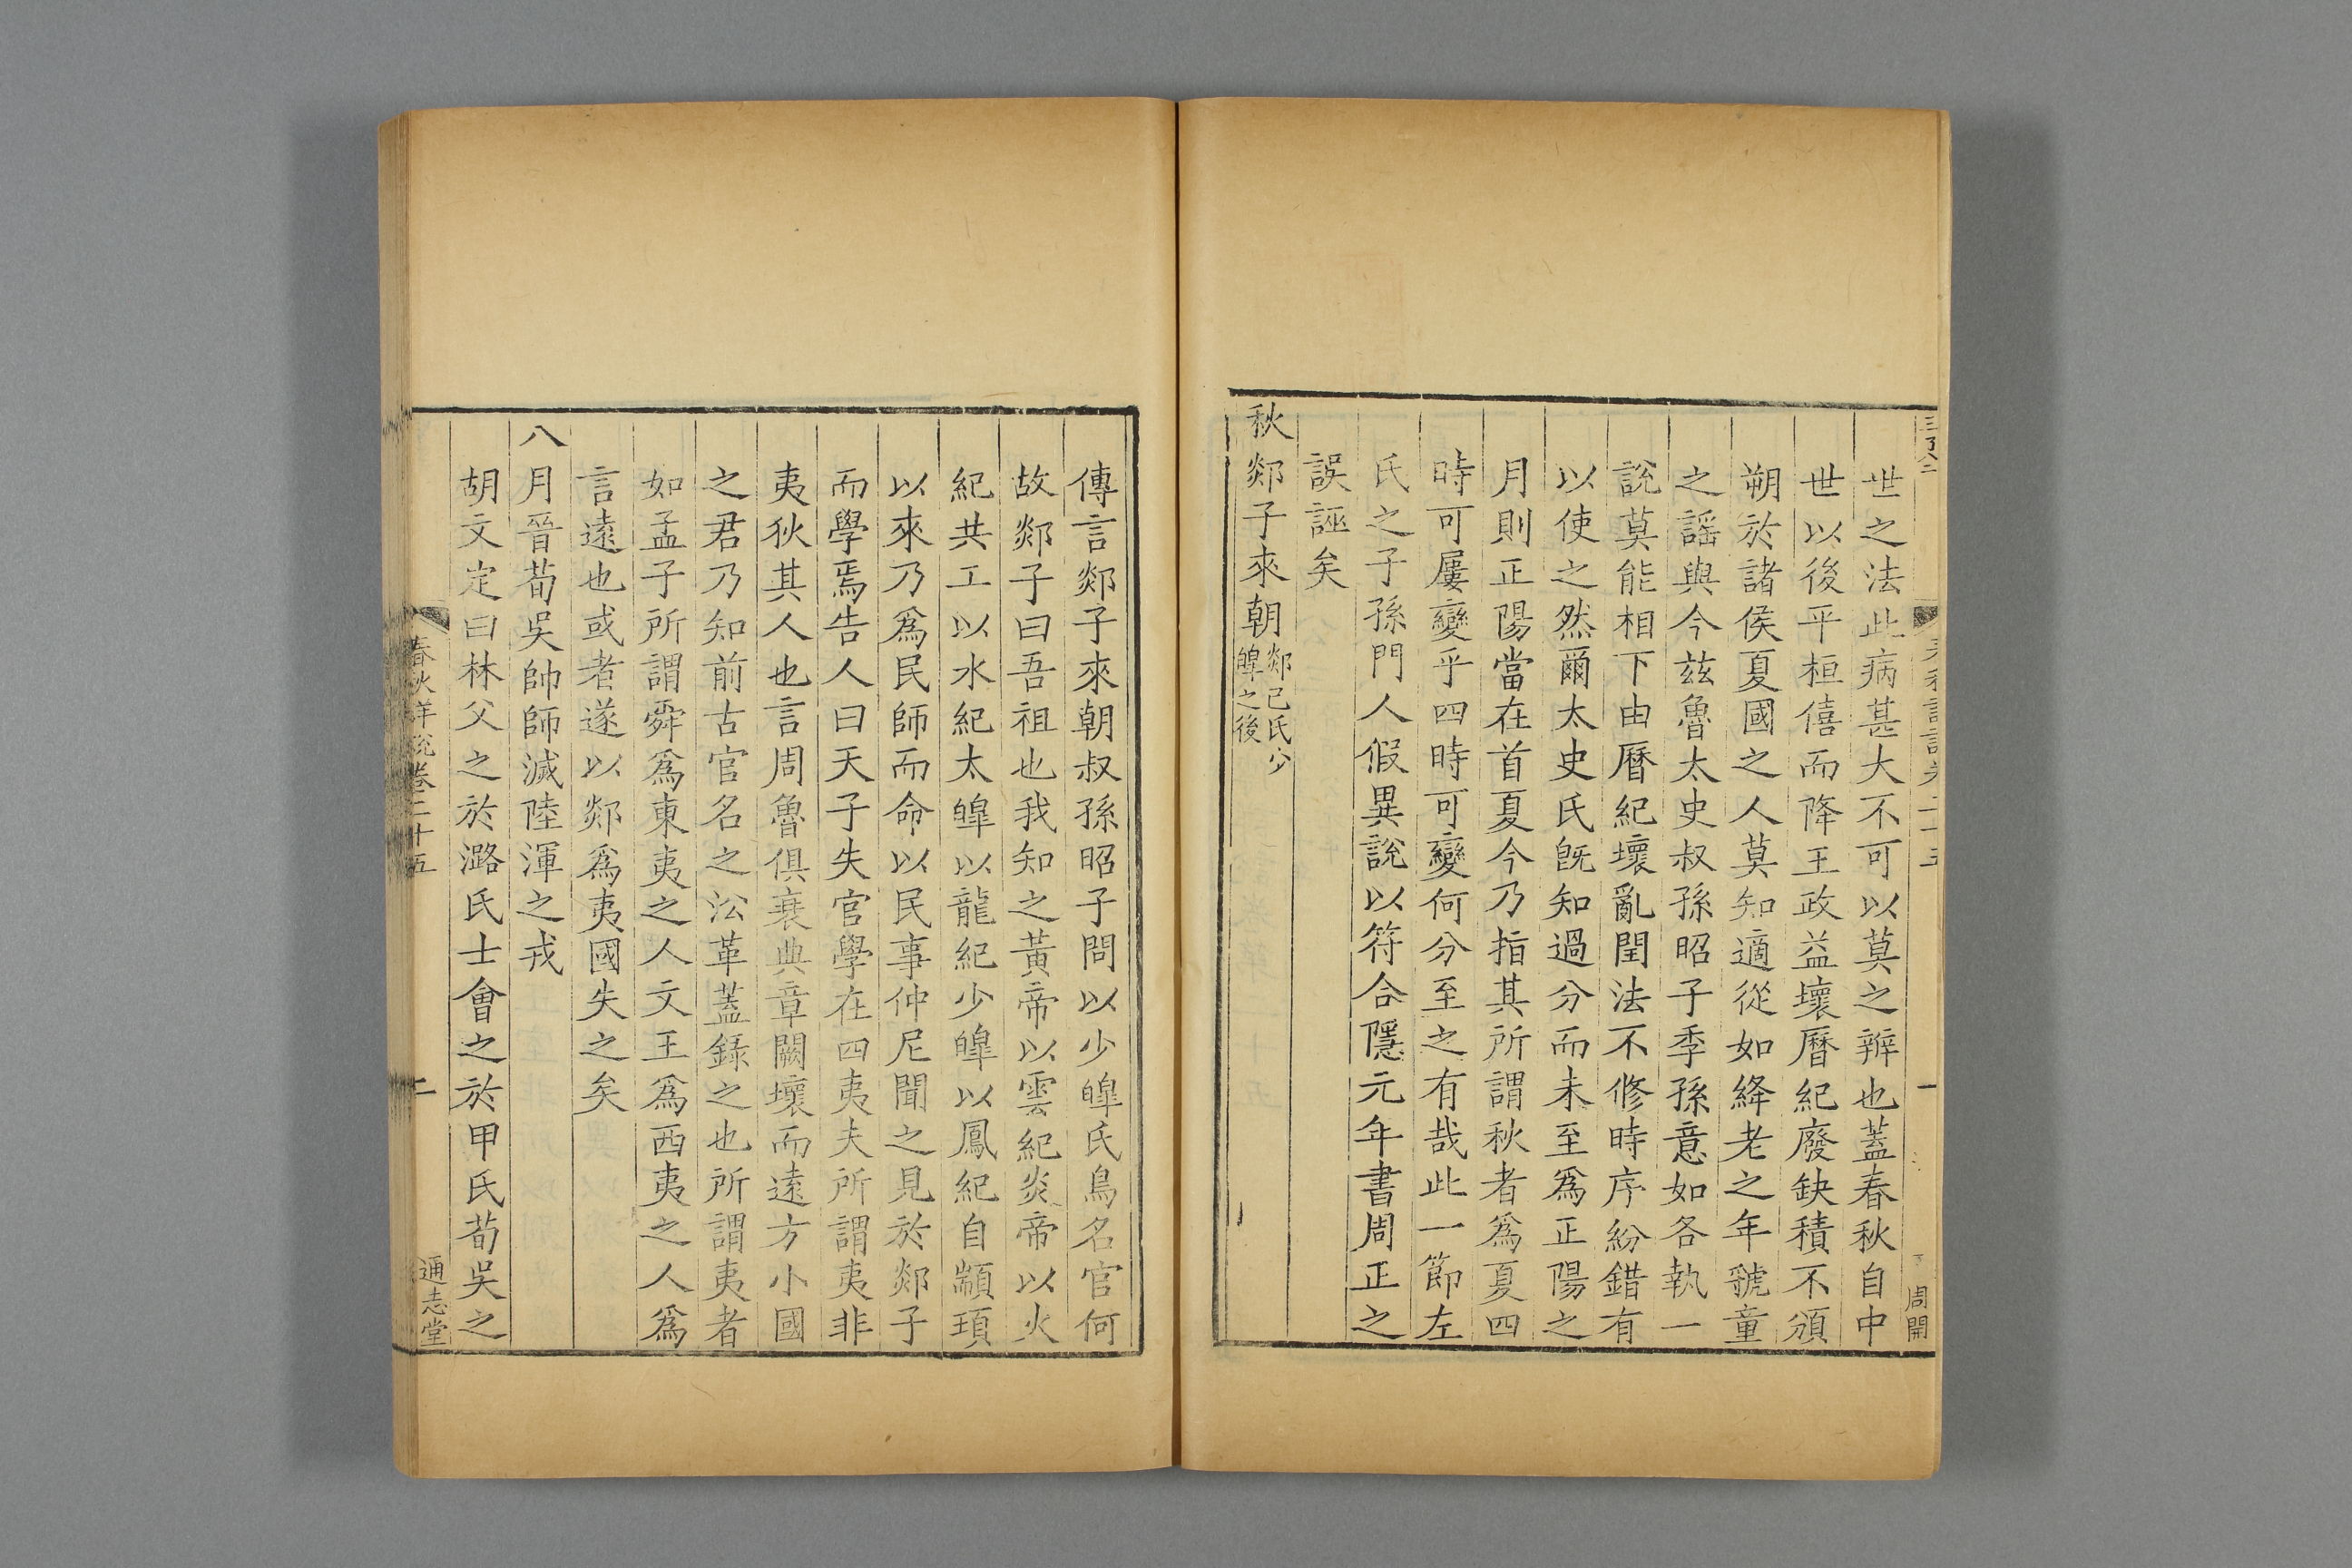 世之法此病甚大不可以莫之辨也蓋春秋自中
世以後平桓僖而降王政益壞曆紀廢缺積不頒
朔於諸侯夏國之人莫知適從如絳老之年虢童
之謡與今茲魯太史叔孫昭子季孫意如各執一
說莫能相下由曆紀壞亂閏法不修時序紛錯有
以使之然爾太史氏旣知過分而未至爲正陽之
月則正陽當在首夏今乃指其所謂秋者爲夏四
時可屢變乎四時可變何分至之有哉此一節左
氏之子孫門人假異說以符合隱元年書周正之
誤誣矣
秋郯子來朝郯己氏少
皥之後
周開
傳言郯子來朝叔孫昭子問以少皥氏鳥名官何
故郯子曰吾祖也我知之黃帝以雲紀炎帝以火
紀共工以水紀太皥以龍紀少皥以鳳紀自顓頊
以來乃爲民師而命以民事仲尼聞之見於郯子
而學焉告人曰天子失官學在四夷夫所謂夷非
夷狄其人也言周魯俱衰典章闕壞而遠方小國
之君乃知前古官名之沿革蓋錄之也所謂夷者
如孟子所謂舜爲東夷之人文王爲西夷之人爲
言遠也或者遂以郯爲夷國失之矣
八月晉荀吳帥師滅陸渾之戎
胡文定曰林父之於潞氏士會之於甲氏荀吳之
春秋詳說卷二十五
二
通志堂